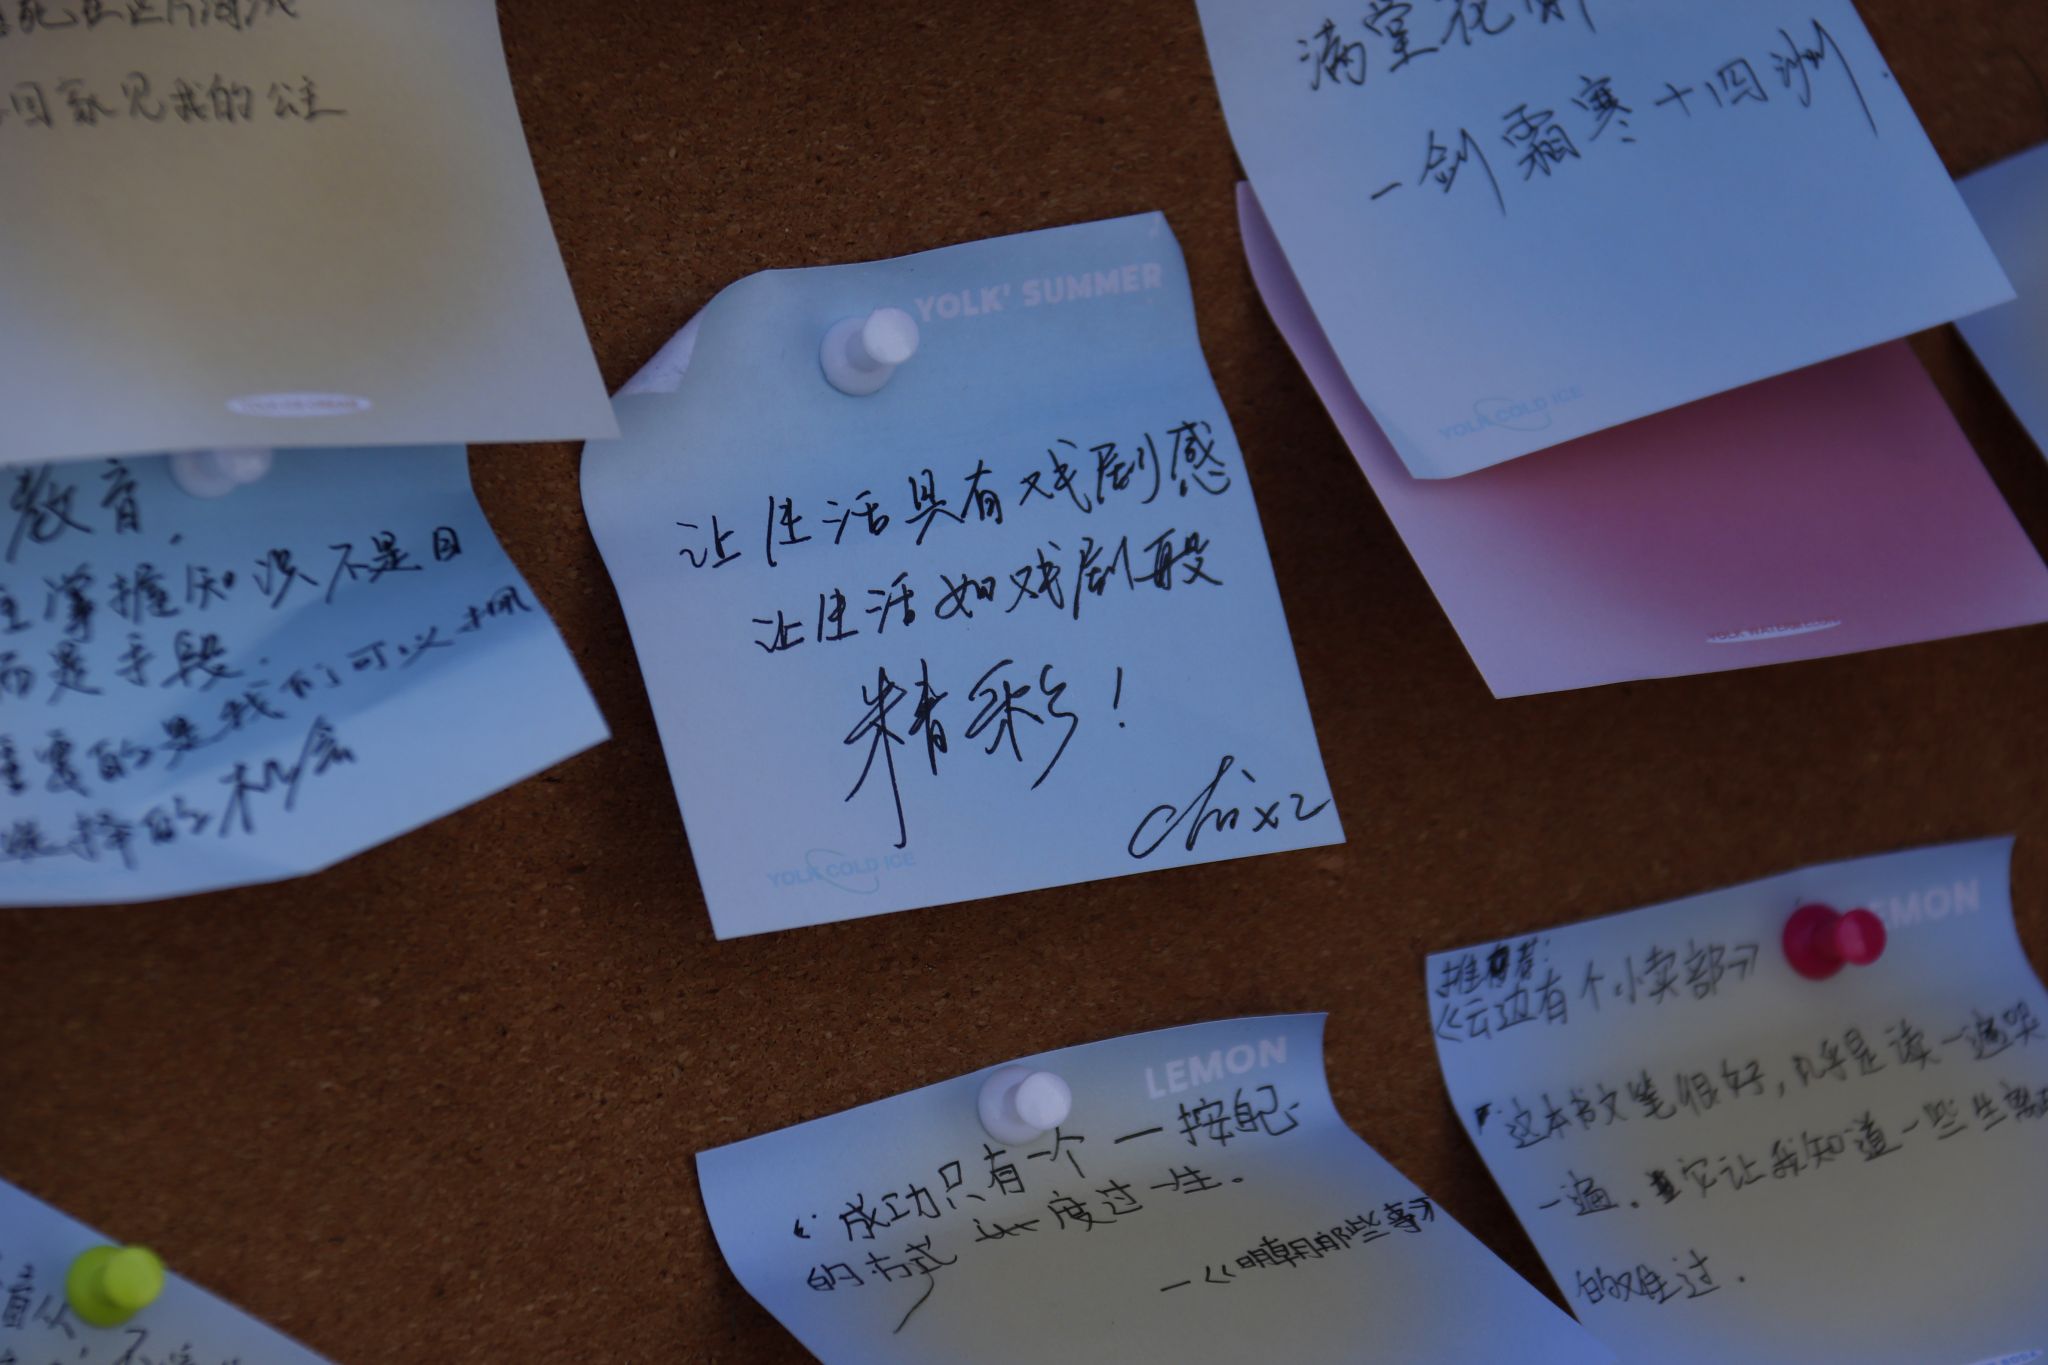 我的公主
满堂花醉
一剑霜寒十四洲.
YOLK COLD ICE
YOLK' SUMMER
让生活具有戏剧感
让生活如戏剧般
精彩!
YOLK COLD ICE
教育.
掌握知识不是目
而是手段.
重要的是我们可以
选择的机会
LEMON
推荐:
《云边有个小卖部》
这本书文笔很好,几乎是读一遍哭
一遍.它让我知道一些生离
的难过.
LEMON
“成功只有一个——按自己
的方式 度过一生.
—《明朝那些事儿